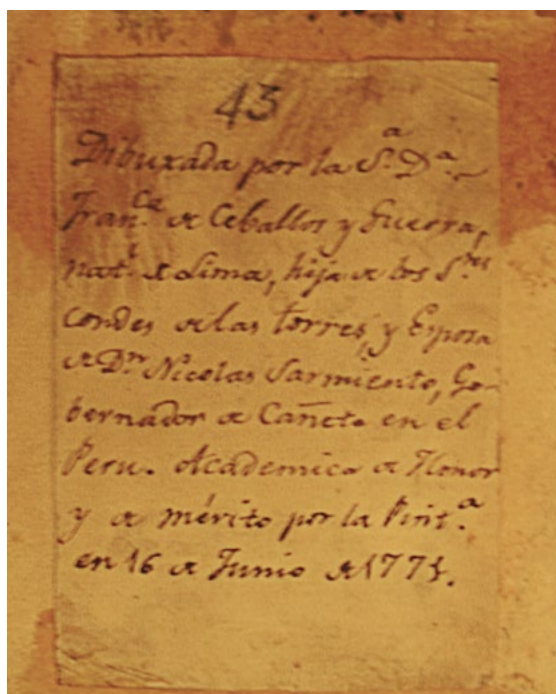 43
Dibuxada por la S.ª D.ª
Fran.ca de Ceballos y Guerra,
nat.l de Lima, hija de los S.res
condes de las torres, y Esposa
de D.n Nicolas Sarmiento, Go-
bernador de Cañete en el
Peru. Academica de Honor
y de mérito por la Pint.ª
en 16 de Junio de 1775.